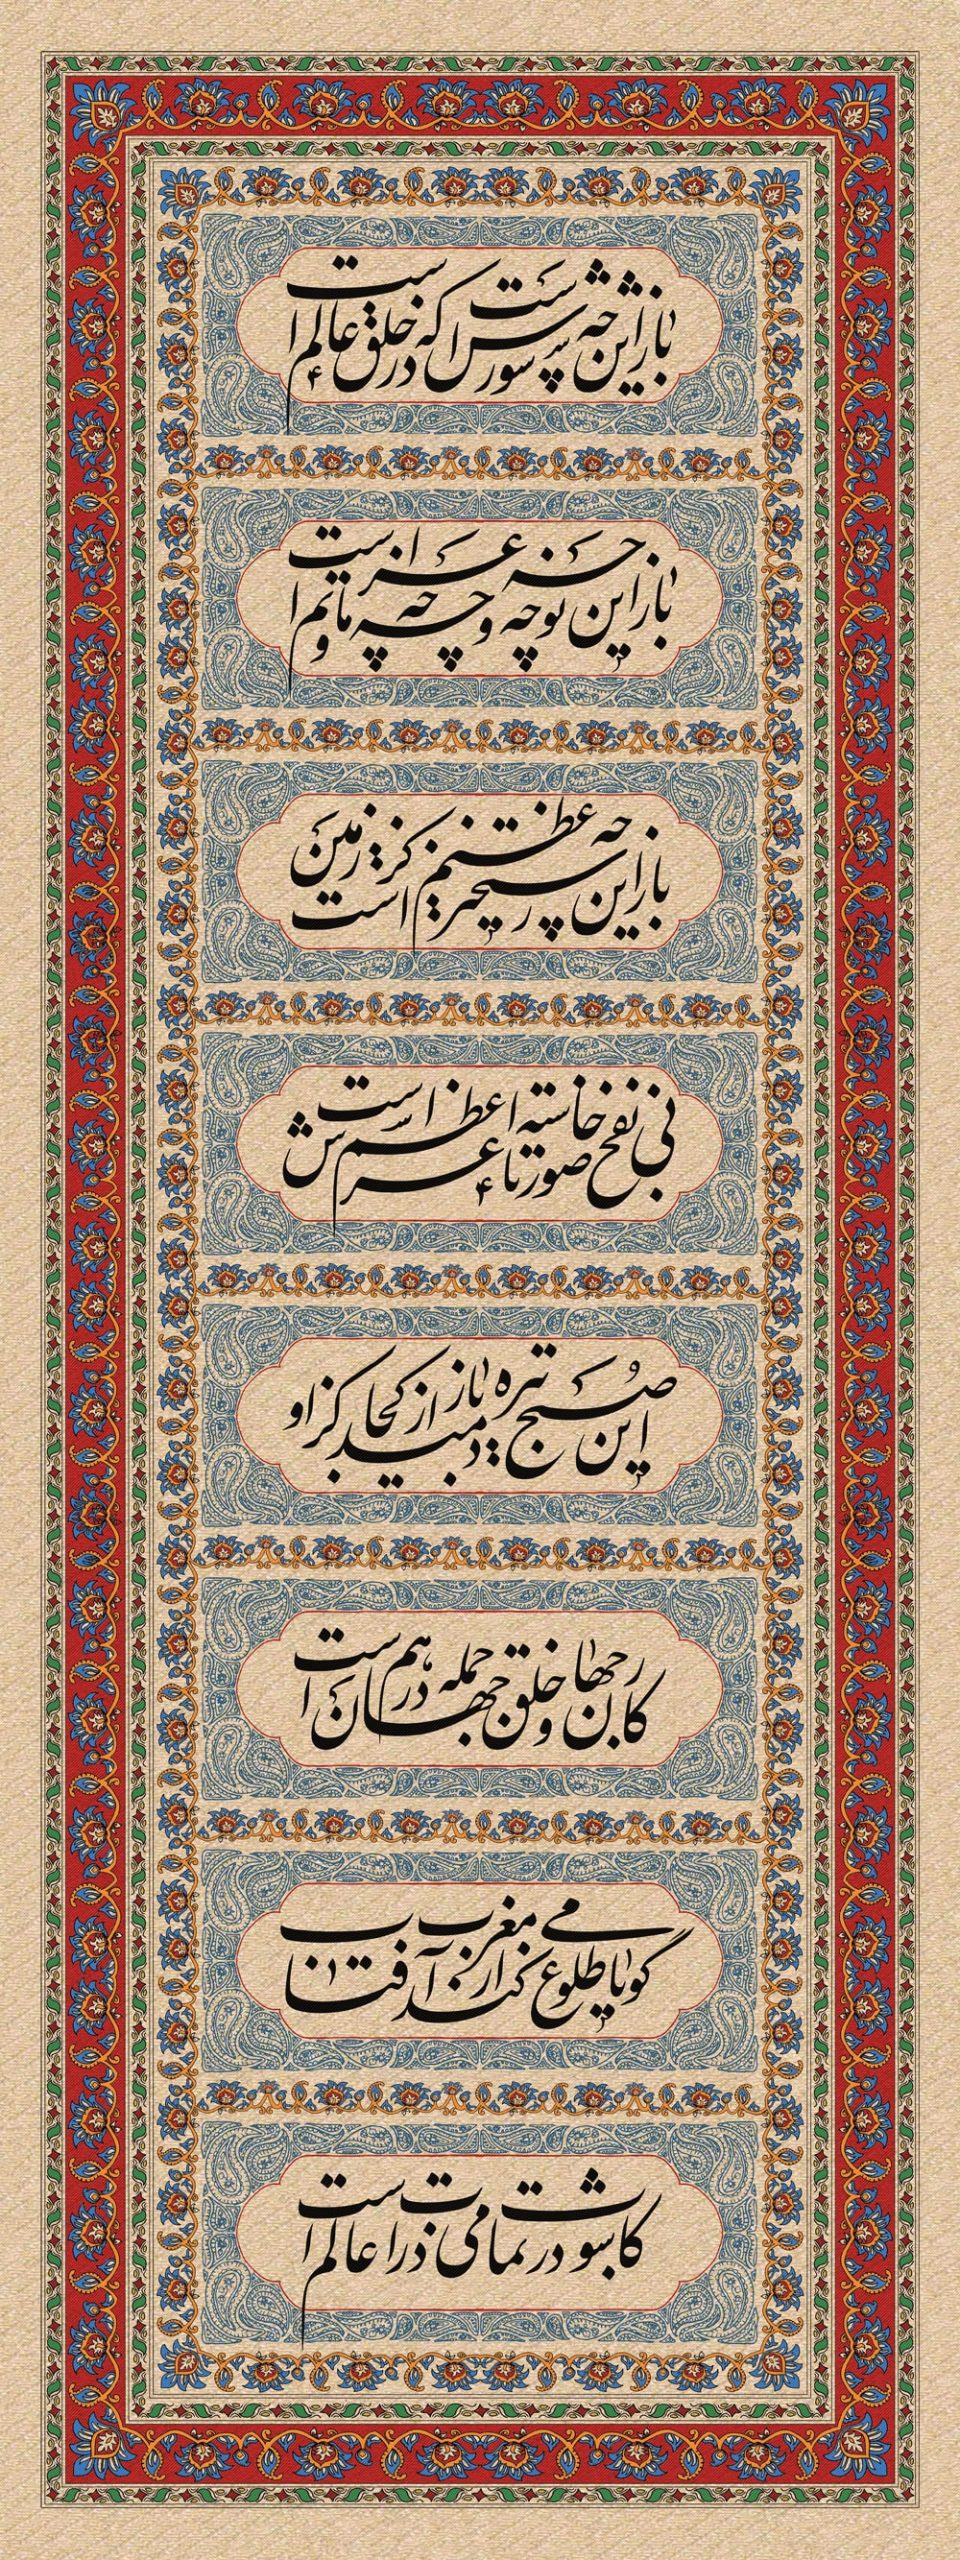 باز این چه شورش است که در خلق عالم است
باز این چه نوحه و چه عزا و چه ماتم است
باز این چه رستخیز عظیم است کز زمین
بی نفخ صور خاسته تا عرش اعظم است
این صبح تیره باز دمید از کجا کزو
کار جهان و خلق جهان جمله درهم است
گویا طلوع می‌کند از مغرب آفتاب
کاشوب در تمامی ذرات عالم است